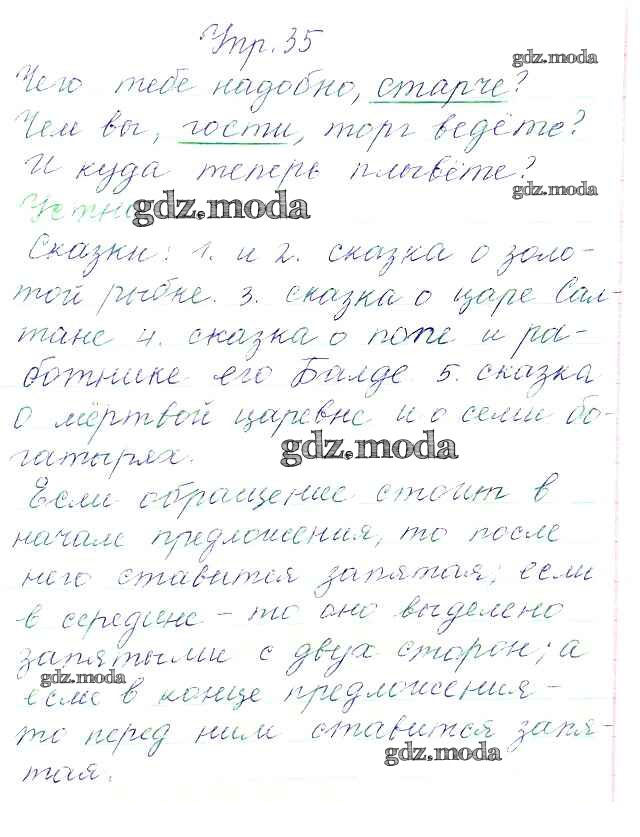 Упр. 35
gdz.moda
Чего тебе надобно, старче?
Чем вы, гости, торг ведёте?
И куда теперь плывёте?
gdz.moda
Устно
gdz.moda
Сказки: 1. и 2. сказка о золо-
той рыбке. 3. сказка о царе Сал-
тане 4. сказка о попе и ра-
ботнике его Балде 5. сказка
о мёртвой царевне и о семи бо-
гатырях.
gdz.moda
Если обращение стоит в
начале предложения, то после
него ставится запятая; если
в середине - то оно выделено
запятыми с двух сторон; а
gdz.moda
если в конце предложения -
то перед ним ставится запя-
gdz.moda
тая.